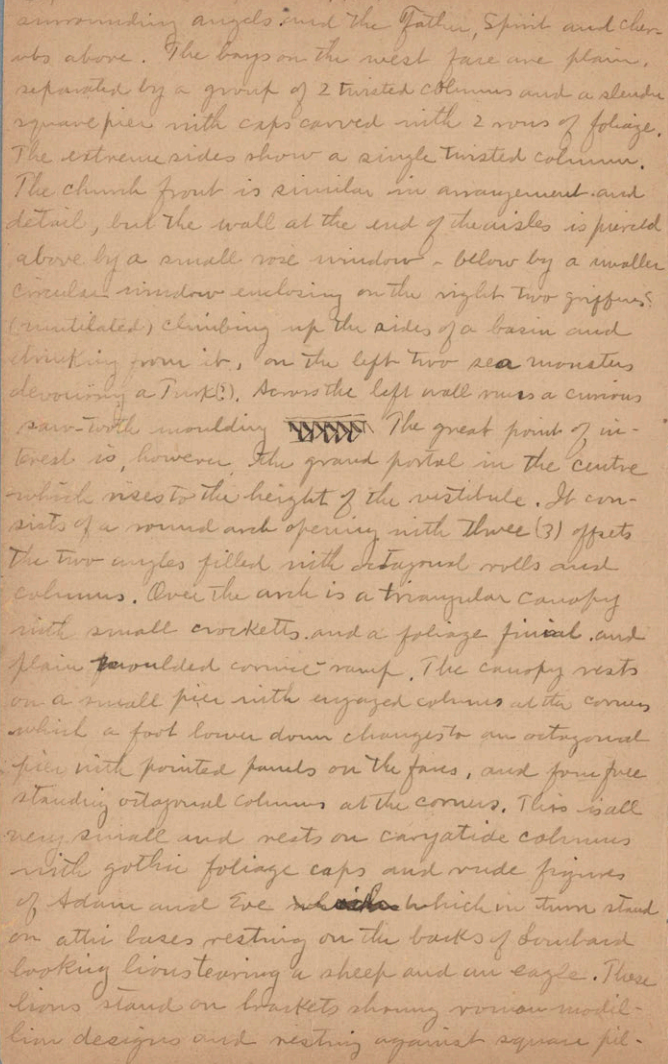 surrounding angels and the Father, Spirit and cher-
ubs above. The bays on the west face are plain,
separated by a group of 2 twisted columns and a slender
square pier with caps carved with 2 rows of foliage.
The extreme sides show a single twisted column.
The church front is similar in arrangement and
detail, but the wall at the end of the aisles is pierced
above by a small rose window - below by a smaller
circular window enclosing on the right two griffins?
(mutilated) climbing up the sides of a basin and
drinking from it, on the left two sea monsters
devouring a Turk(?). Across the left wall runs a curious
saw-tooth moulding The great point of in-
terest is, however, the grand portal in the centre
which rises to the height of the vestibule. It con-
sists of a round arch opening with three (3) offsets
the two angles filled with octagonal rolls and
columns. Over the arch is a triangular canopy
with small crocketts and a foliage finial and
plain moulded cornice ramp. The canopy rests
on a small pier with engaged columns at the corners
which a foot lower down changes to an octagonal
pier with pointed panels on the faces, and four free
standing octagonal columns at the corners. This is all
very small and rests on caryatide columns
with gothic foliage caps and rude figures
of Adam and Eve which in turn stand
on attic bases resting on the backs of Lombard
looking lions tearing a sheep and an eagle. These
lions stand on brackets showing roman modil-
lion designs and resting against square pil-